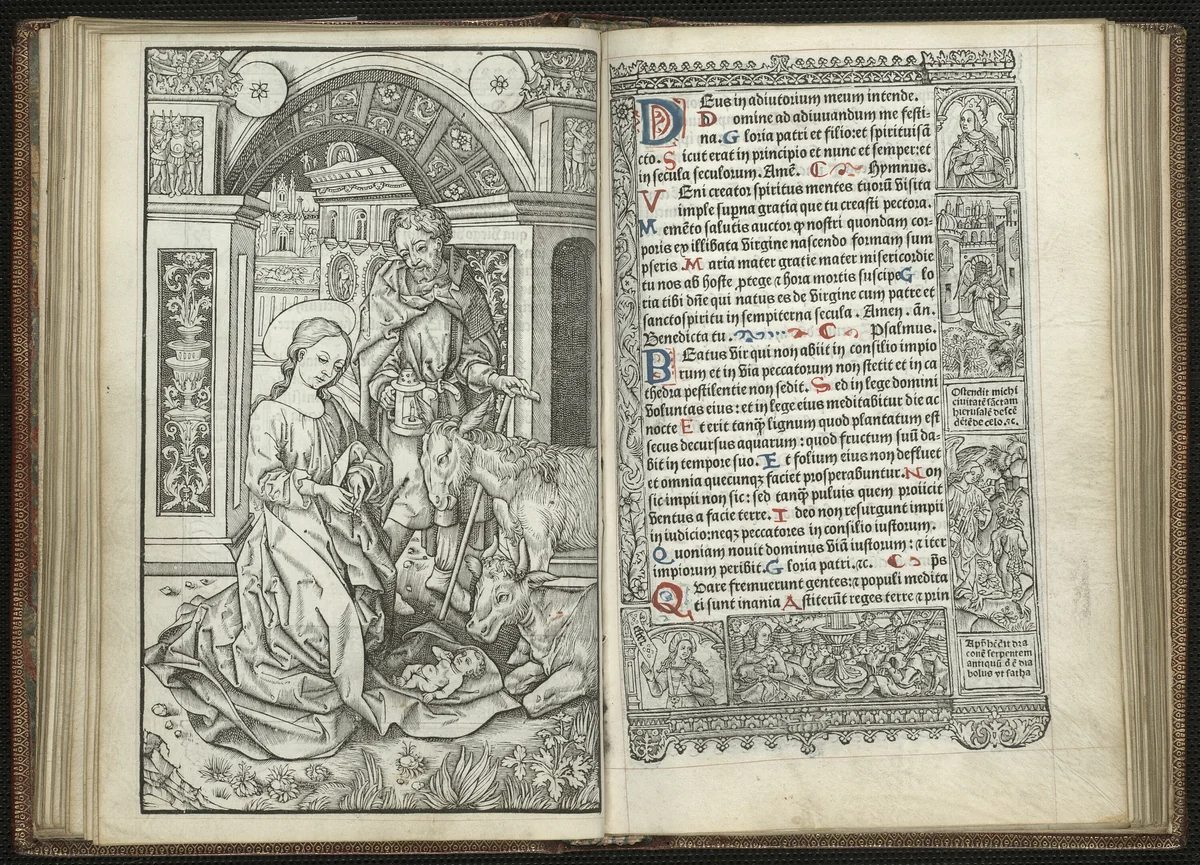 Deus in adiutorium meum intende.
Domine ad adiuuandum me festi-
na. Gloria patri et filio: et spirituisā
cto. Sicut erat in principio et nunc et semper: et
in secula seculorum. Amē. Hymnus.
Veni creator spiritus mentes tuorū visita
imple supna gratia que tu creasti pectora.
Memēto salutis auctor qƺ nostri quondam cor-
poris ex illibata virgine nascendo formam sum
pseris. Maria mater gratie mater misericordie
tu nos ab hoste ꝓtege ⁊ hora mortis suscipe Glo
ria tibi dñe qui natus es de virgine cum patre et
sancto spiritu in sempiterna secula. Amen. añ.
Benedicta tu. Psalmus.
Beatus vir qui non abiit in consilio impio
rum et in via peccatorum non stetit et in ca
thedra pestilentie non sedit. Sed in lege domini
voluntas eius: et in lege eius meditabitur die ac
nocte Et erit tanqƺ lignum quod plantatum est
secus decursus aquarum: quod fructum suū da-
bit in tempore suo. Et folium eius non defluet
et omnia quecunqƺ faciet prosperabuntur. Non
sic impii non sic: sed tanqƺ puluis quem proiicit
ventus a facie terre. Ideo non resurgunt impii
in iudicio: neqƺ peccatores in consilio iustorum.
Quoniam nouit dominus viā iustorum: ⁊ iter
impiorum peribit. Gloria patri. ⁊c. p̄s
Quare fremuerunt gentes: ⁊ populi medita
ti sunt inania Astiterūt reges terre ⁊ prin
Ostendit michi
ciuitatē sāctam
hierusalē descē
dētē de celo. ⁊c.
antiquū
bolus